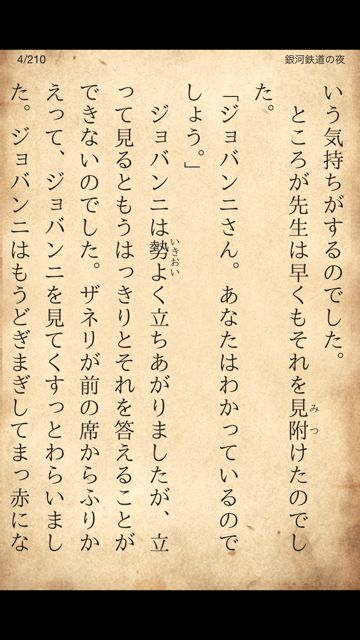 4/210
銀河鉄道の夜
いう気持ちがするのでした。
ところが先生は早くもそれを見附けたのでし
みつ
た。
「ジョバンニさん。あなたはわかっているので
しょう。」
ジョバンニは勢よく立ちあがりましたが、立
いきおい
って見るともうはっきりとそれを答えることが
できないのでした。ザネリが前の席からふりか
えって、ジョバンニを見てくすっとわらいまし
た。ジョバンニはもうどぎまぎしてまっ赤にな